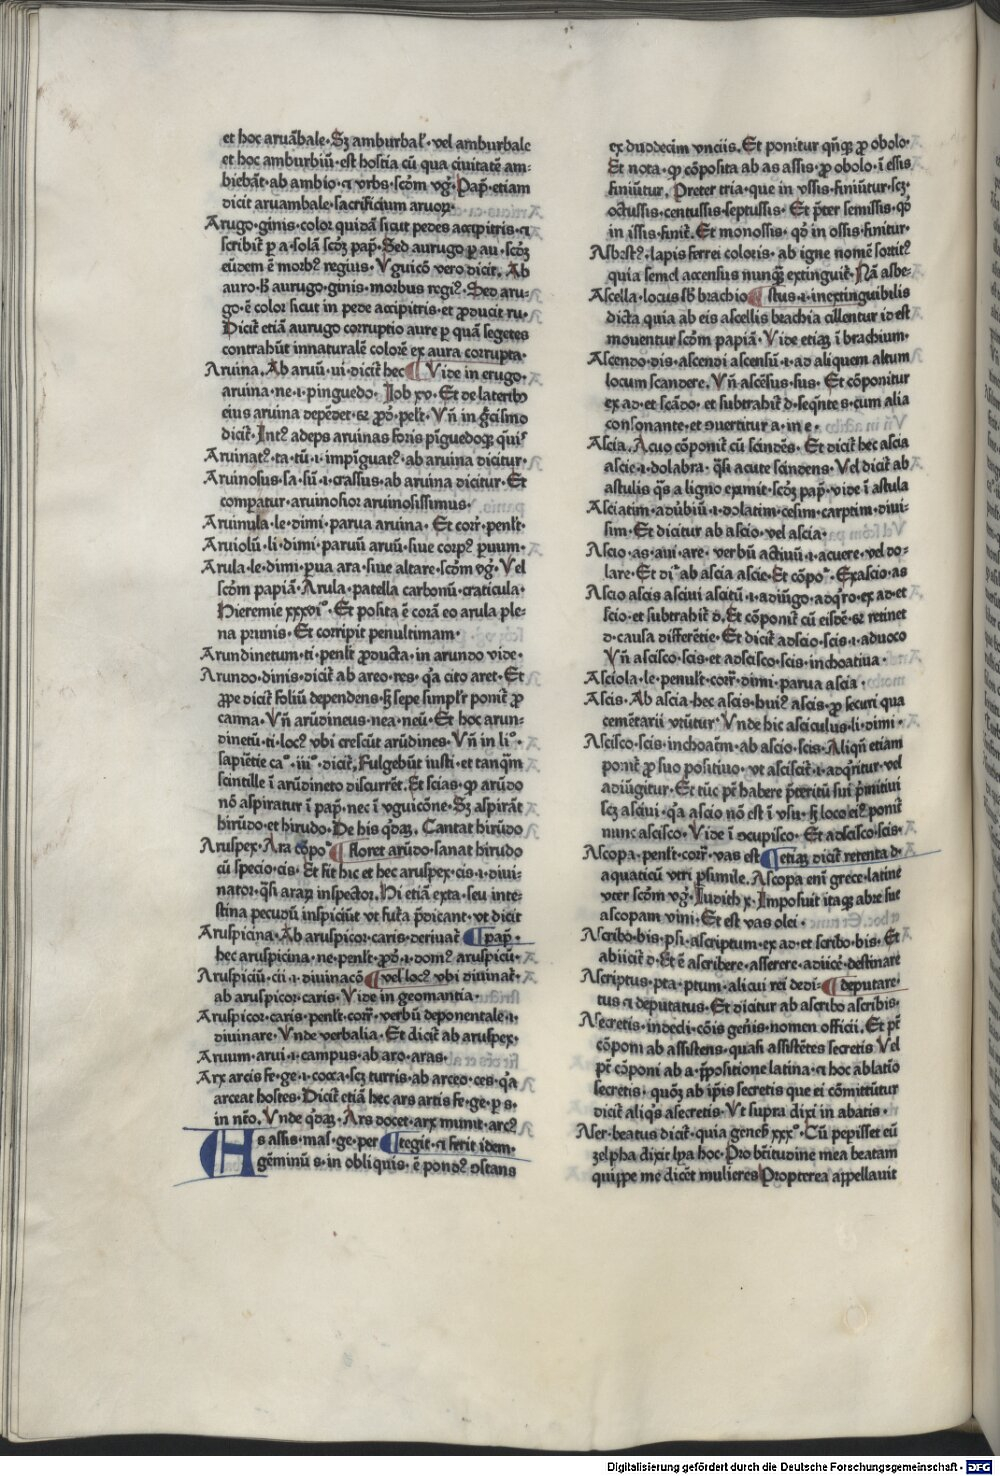 et hoc aruãbale· Sꝫ amburbal̓· vel amburbale
et hoc amburbiũ· est hostia cũ qua ciuitatẽ am⸗
biebãt· ab ambio· ⁊ vrbs· scðm vg̓· Pap̃· etiam
dicit aruambale· sacrificium aruoꝝ·
Arugo· ginis· color quidã sicut pedes accipitris· ⁊
scribit̃ ꝑ a· solã scðꝫ pap̃· Sed aurugo ꝑ au· scðꝫ
eũdem ẽ morbꝰ regius· Vguicõ vero dicit· Ab
auro· h̃ aurugo· ginis· morbus regiꝰ· Sed aru⸗
go· ẽ color sicut in pede accipitris· et ꝓducit ru·
Dicit̃ etiã aurugo corruptio aure ꝑ quã segetes
contrahũt innaturalẽ colorẽ ex aura corrupta·
Aruina· Ab aruũ· ui· dicit̃ hec ¶ Vide in erugo·
aruina· ne· i· pinguedo· Iob xv· Et de lateribꝰ
eius aruina depẽdet· ꝫ ꝓdꝰ· pel̃t· Vñ in g̃cismo
dicit̃· Intꝰ adeps aruinas foris pĩguedoqꝫ
Aruinatꝰ· ta· tũ· i· impĩguatꝰ· ab aruina dicitur·
Aruinosus· sa· sũ· i· crassus· ab aruina dicitur· Et
compatur· aruinosior aruinosissimus·
Aruinula· le· dimi· parua aruina· Et corr̃· penl̃t·
Aruiolũ· li· dimi· paruũ aruũ· siue corpꝰ ꝑuum·
Arula· le· dimi· ꝑua ara· siue altare· scðm vg̓· Vel
scðm papiã· Arula· patella carbonũ· craticula·
Hieremie xxxviº· Et posita ẽ corã eo arula ple⸗
na prunis· Et corripit penultimam·
Arundinetum· ti· penl̃t ꝓducta· in arundo vide·
Arundo· dinis· dicit̃ ab areo· res· qꝛ cito aret· Et
ꝓpe dicit̃ foliũ dependens· sꝫ sepe simpl̃r ponit̃ ꝓ
canna· Vñ arũdineus· nea· neũ· Et hoc arun⸗
dinetũ· ti· locꝰ vbi crescũt arũdines· Vñ in liº·
sapiẽtie caº· iiiº· dicit̃· Fulgebũt iusti· et tanqm̃
scintille ĩ arũdineto discurrẽt· Et scias· ꝙ arũdo
nõ aspiratur ĩ pap̃· nec ĩ vguicõne· Sꝫ aspirãt
hirũdo· et hirudo· De his qdaꝫ· Cantat hirũdo
Aruspex· Ara cõpoº ¶ floret arũdo· sanat hirudo
cũ specio· cis· Et fit hic et hec aruspex· cis· i· diui⸗
nator· qͣsi araꝝ inspector· Hi etiã exta· seu inte⸗
stina pecudũ inspiciũt vt fut̃a p̃dicant· vt dicit
Aruspicina· Ab aruspicor· caris· deriuat̃ ¶ pap̃·
hec aruspicina· ne· penl̃t· ꝓdꝰ· i· domꝰ aruspiciũ·
Aruspiciũ· cii· i· diuinacõ ¶ vel locꝰ vbi diuinat̃·
ab aruspicor· caris· Vide in geomantia·
Aruspicor· caris· penl̃t· corr̃· verbũ deponentale· i·
diuinare· Vnde verbalia· Et dicit̃ ab aruspex·
Aruum· arui· i· campus· ab aro· aras·
Arx arcis fe· ge· i· cocca· scꝫ turris· ab arceo· ces· qꝛ
arceat hostes· Dicit̃ etiã hec ars artis fe· ge· ꝑ s·
in nẽo· Vnde qdaꝫ· Ars docet· arx munit· arcꝰ
As assis· mas· ge· per ¶ tegit· ⁊ ferit idem·
gẽminũ s· in obliquis· ẽ pondꝰ ↄstans
ex duodecim vnciis· Et ponitur qñqꝫ ꝓ obolo·
Et nota· ꝙ cõposita ab as assis· ꝓ obolo· ĩ essis
finiũtur· Preter tria· que in vssis· finiũtur· scꝫ·
octussis· centussis· septussis· Et p̃ter semissis· qð
in issis· finit̃· Et monossis· qð in ossis· finitur·
Asbestꝰ· lapis ferrei coloris· ab igne nomẽ sortitꝰ
quia semel accensus nunqꝫ extinguit̃· Nã asbe⸗
Ascella· locus sb̃ brachio ¶ stus· i· inextinguibilis
dicta quia ab eis ascellis brachia cillentur id est
mouentur scðm papiã· Vide etiaꝫ ĩ brachium·
Ascendo· dis· ascendi ascensũ· i· ad aliquem altum
locum scandere· Vñ ascẽsus· sus· Et cõponitur
ex ad· et scãdo· et subtrahit̃ d· seqñte s· cum alia
consonante· et ↄuertitur a· in e·
Ascia· Acuo cõponit̃ cũ scindẽs· Et dicit̃ hec ascia
ascie· i· dolabra· qͣsi acute scindens· Vel dicit̃ ab
astulis qͣs a ligno eximit· scðꝫ pap̃· vide ĩ astula
Asciatim· adũbiũ· i· dolatim· cesim· carptim· diui⸗
sim· Et dicitur ab ascio· vel ascia·
Ascio· as· aui· are· verbũ actiuũ· i· acuere· vel do⸗
lare· Et diꝰ ab ascia ascie· Et cõpoº· Exascio· as
Ascio ascis asciui ascitũ· i· adiũgo· adqͥro· ex ad· et
scio· et subtrahit̃ d· Et cõponit̃ cũ eisdẽ· sꝫ retinet
d· causa differẽtie· Et dicit̃ adscio· scis· i· aduoco
Vñ ascisco· scis· et adscisco· scis· inchoatiua·
Asciola· le· penult̃· corr̃· dimi· parua ascia·
Ascis· Ab ascia· hec ascis· huiꝰ ascis· ꝓ securi qua
cemẽtarii vtũtur· Vnde hic asciculus· li· dimi·
Ascisco· scis· inchoatm̃· ab ascio· scis· Aliqñ etiam
ponit̃ ꝓ suo positiuo· vt asciscit̃· i· adqͥritur· vel
adiũgitur· Et tũc pt̃ habere p̃teritũ sui p̃mitiui
scꝫ asciui· qꝛ ascio nõ est ĩ vsu· sꝫ loco eiꝰ ponit̃
nunc ascisco· Vide ĩ ↄcupisco· Et adscisco· scis·
Ascopa· penl̃t· corr̃· vas est ¶ etiaꝫ dicit̃ retenta d·
aquaticũ vtri ꝓsimile· Ascopa eni̇̃ grece· latine
vter scðm vg̓· Iudith x· Imposuit itaqꝫ abre sue
ascopam vini· Et est vas olei·
Ascribo· bis· psi· ascriptum· ex ad· et scribo· bis· Et
abiicit̃ d· Et ẽ ascribere· asserere· adiicẽ· destinare
Ascriptus· pta· ptum· alicui rei dedi⸗ ¶ deputare·
tus ⁊ deputatus· Et dicitur ab ascribo ascribis·
Asecretis· indecli· cõis geñis· nomen officii· Et pt̃
cõponi ab assistens· quasi assistẽtes secretis Vel
pt̃ cõponi ab a· p̃positione latina· ⁊ hoc ablatio
secretis· quoꝫ ab ip̃is secretis que ei cõmittũtur
dicit̃ aliqͥs asecretis· Vt supra dixi in abatis·
Aser· beatus dicit̃· quia geneꝫ xxxº· Cũ pepisset eũ
zelpha dixit lya hoc· Pro btĩtudine mea beatam
quippe me dicẽt mulieres Propterea appellauit
Digitalisierung gefördert durch die Deutsche Forschungsgemeinschaft - DFG